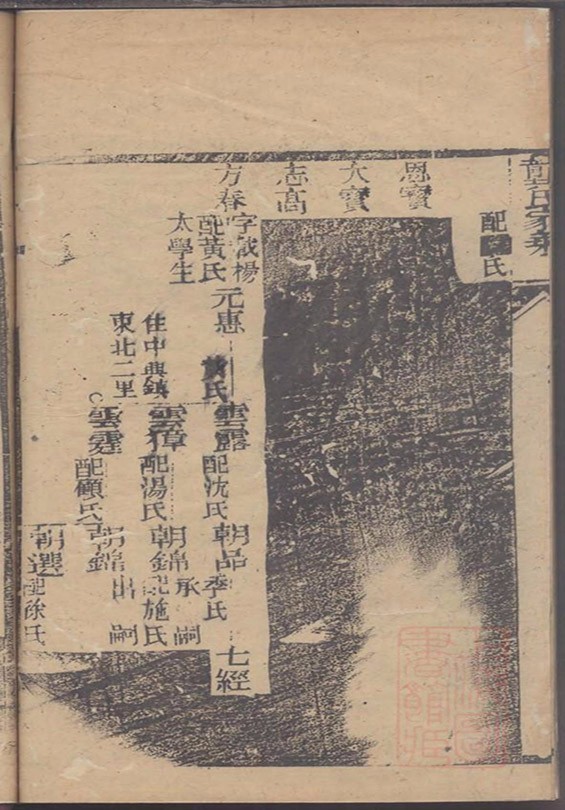 氏家乘
配
氏
恩寶
大寶
志高
方春
字成楊
配黃氏
太學生
元惠
住中興鎮
東北二里
黃氏
雲露
配沈氏
朝品
李氏
七經
雲樟
配湯氏
朝錦
承嗣
朝錦
配施氏
雲霆
配顧氏
朝錦
出嗣
朝選
配徐氏